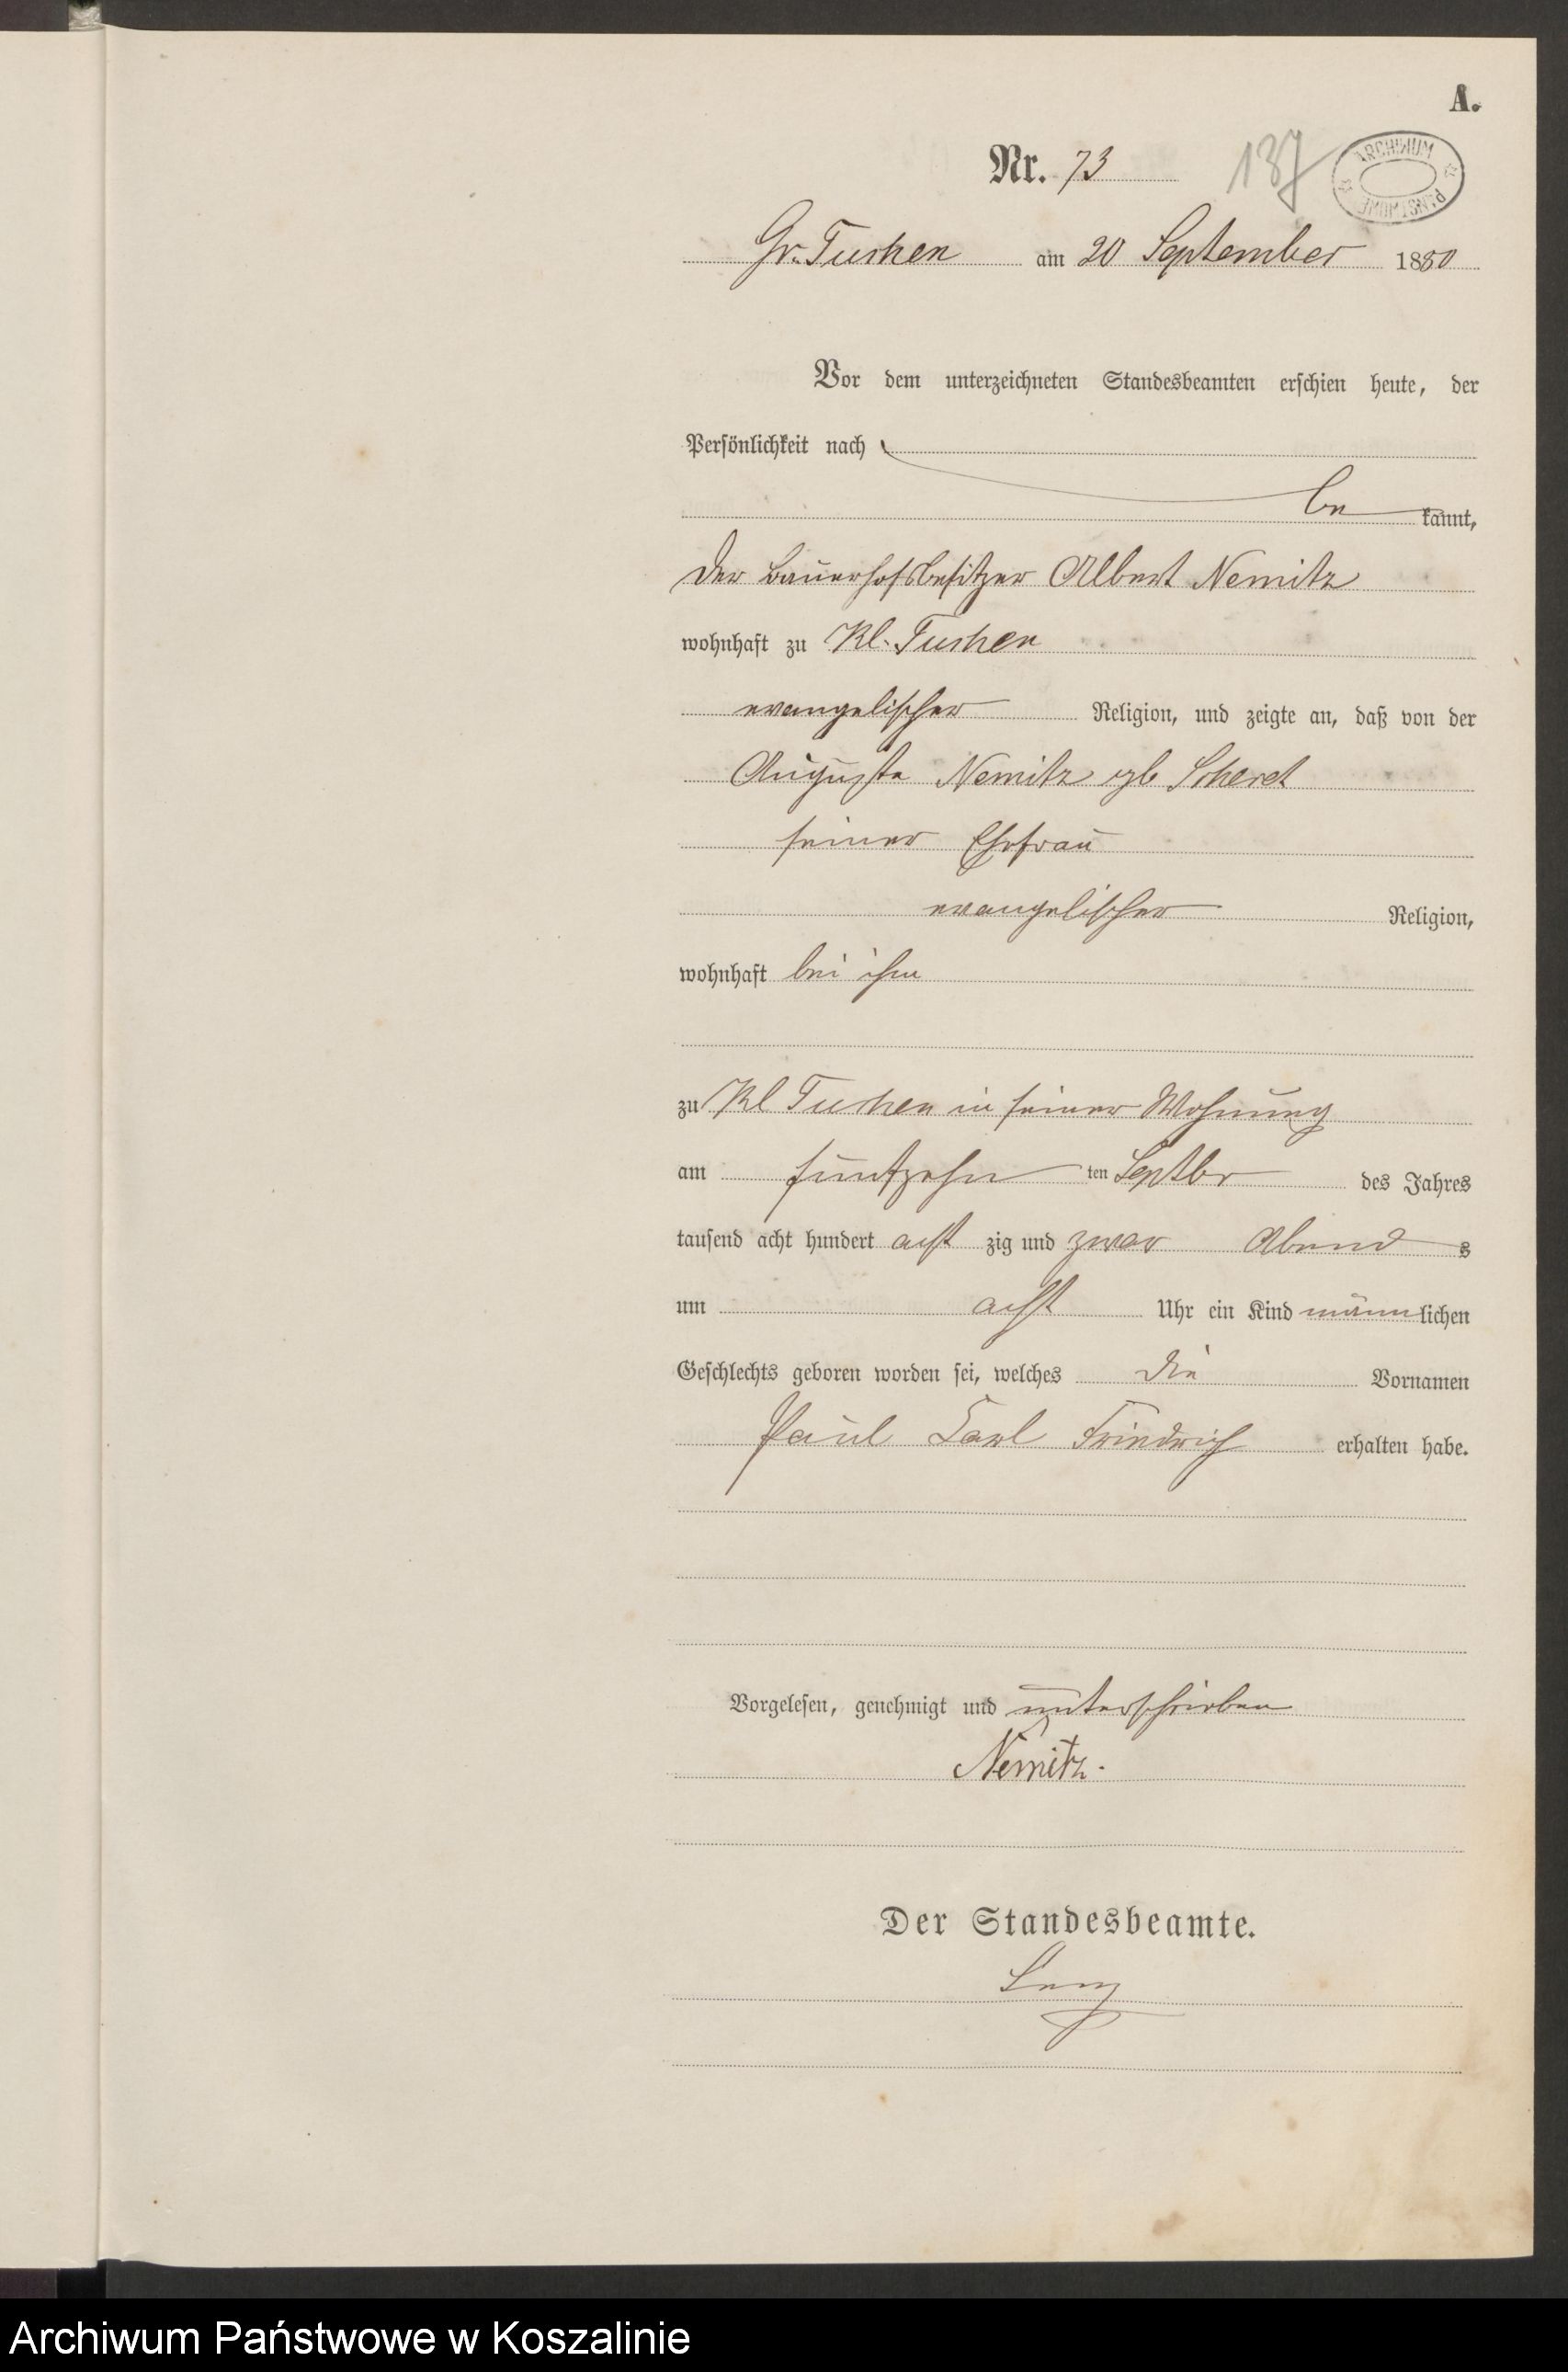 A.
Nr. 73
137
ARCHIWUM PAŃSTWOWE
Gr. Tuchen am 20 September 1880
Vor dem unterzeichneten Standesbeamten erschien heute, der
Persönlichkeit nach
be kannt,
der Bauerhofsbesitzer Albert Nemitz
wohnhaft zu Kl. Tuchen
evangelischer Religion, und zeigte an, daß von der
Auguste Nemitz geb
seiner Ehefrau
evangelischer Religion,
wohnhaft bei ihm
zu Kl Tuchen in seiner Wohnung
am fünfzehn ten Septbr des Jahres
tausend acht hundert acht zig und zwar Abend s
um acht Uhr ein Kind männlichen
Geschlechts geboren worden sei, welches die Vornamen
Paul Carl Friedrich erhalten habe.
Vorgelesen, genehmigt und unterschrieben
Nemitz.
Der Standesbeamte.
Archiwum Państwowe w Koszalinie